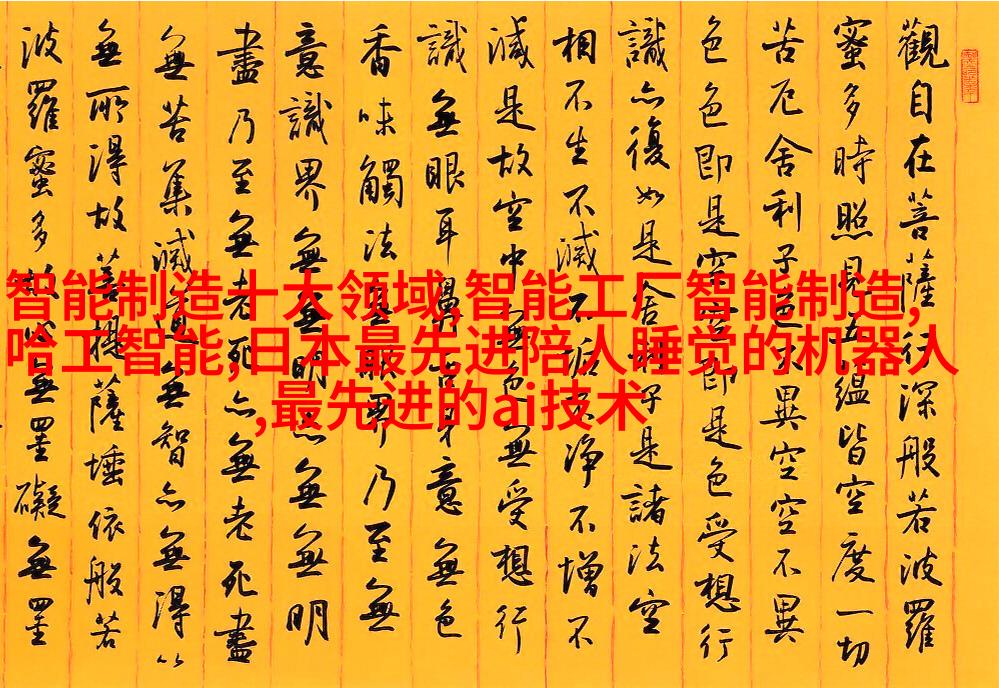 智能制造十大领域,智能工厂智能制造,
哈工智能,日本最先进陪人睡觉的机器人
,最先进的ai技术
觀自在菩薩行深般若波羅
蜜多時照見五蘊皆空度一切
苦厄舍利子色不異空空不異
色色即是空空即是色受想行
識亦復如是舍利子是諸法空
相不生不滅不垢不淨不增不
減是故空中無色無受想行
識無眼耳鼻舌身意無色
香味觸法無眼界乃至無
意識界無無明亦無無明
盡乃至無老死亦無老死盡
無苦集滅道無智亦無得以
無所得故菩提薩埵依般若
波羅蜜多故心無罣礙無罣